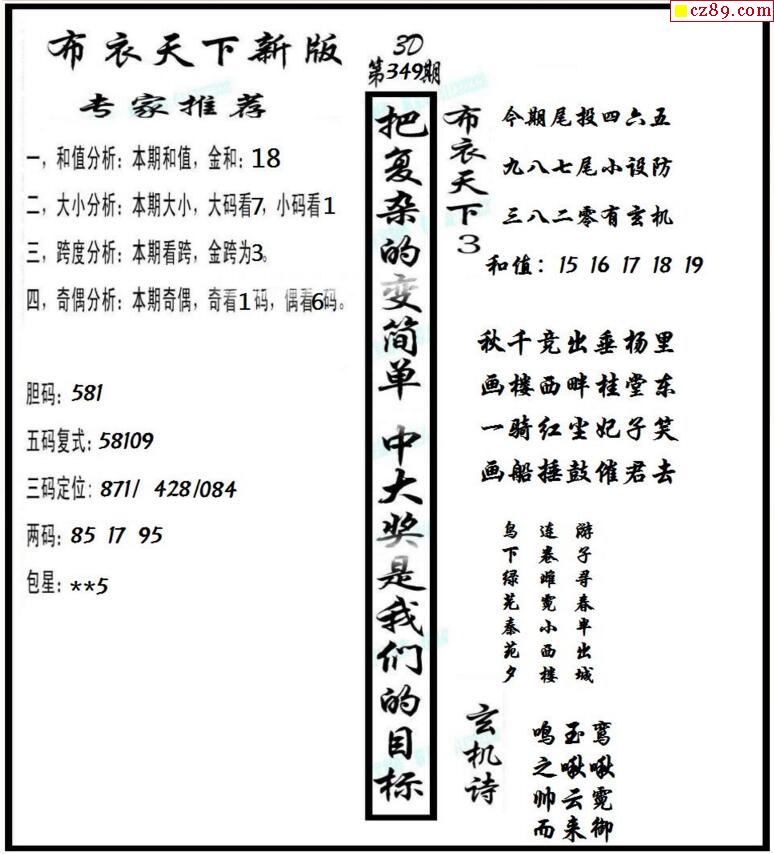 cz89.com
布衣天下新版
专家推荐
一，和值分析：本期和值，金和：18
二，大小分析：本期大小，大码看7，小码看1
三，跨度分析：本期看跨，金跨为3。
四，奇偶分析：本期奇偶，奇看1码，偶看6码。
胆码：581
五码复式：58109
三码定位：871/ 428/084
两码：85 17 95
包星：**5
3D
第349期
把复杂的变简单 中大奖是我们的目标
布衣天下3
今期尾投四六五
九八七尾小设防
三八二零有玄机
和值：15 16 17 18 19
秋千竞出垂杨里
画楼西畔桂堂东
一骑红尘妃子笑
画船捶鼓催君去
游子寻春半出城
连卷雌霓小西楼
鸟下绿芜秦苑夕
玄机诗
鸾啾霓御
玉啾云来
鸣之帅而